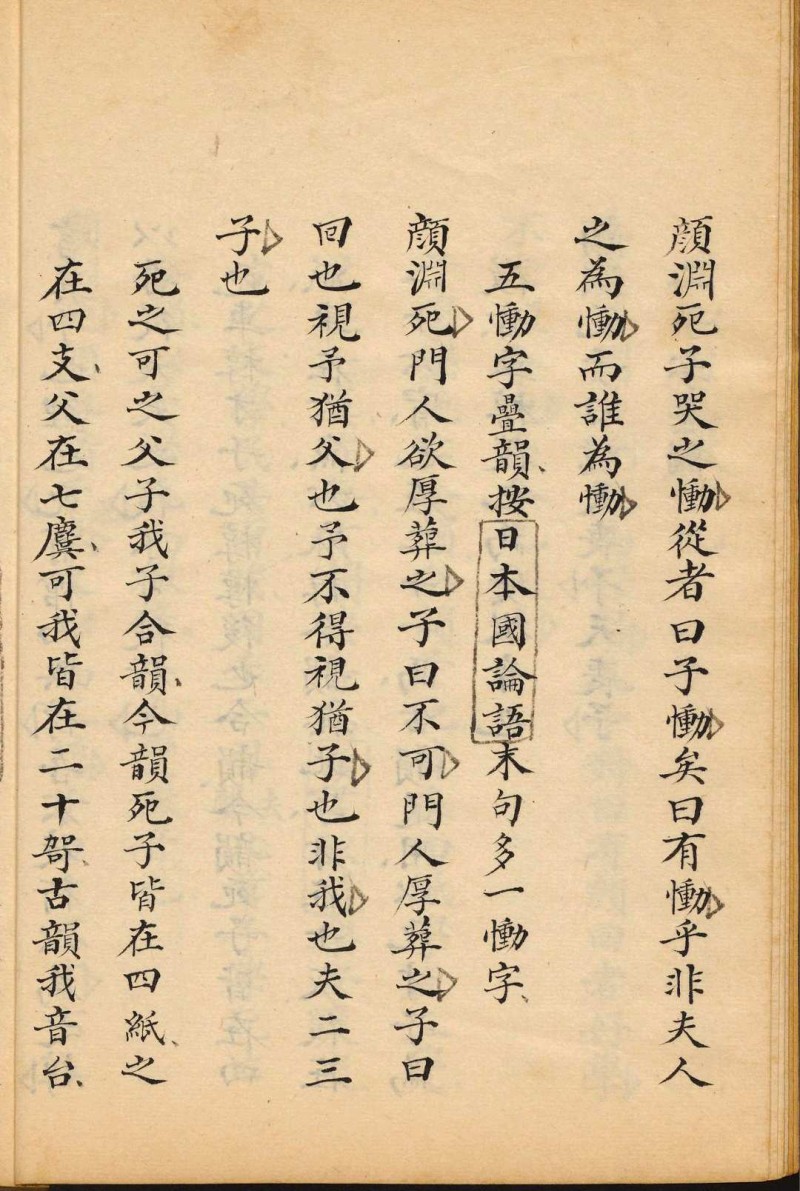 顔淵死子哭之慟從者曰子慟矣曰有慟乎非夫人
之為慟而誰為慟
五慟字疊韻、按日本國論語末句多一慟字、
顔淵死門人欲厚葬之子曰不可門人厚葬之子曰
回也視予猶父也予不得視猶子也非我也夫二三
子也
死之可之父子我子合韻、今韻死子皆在四紙、之
在四支、父在七麌、可我皆在二十哿、古韻我音台、